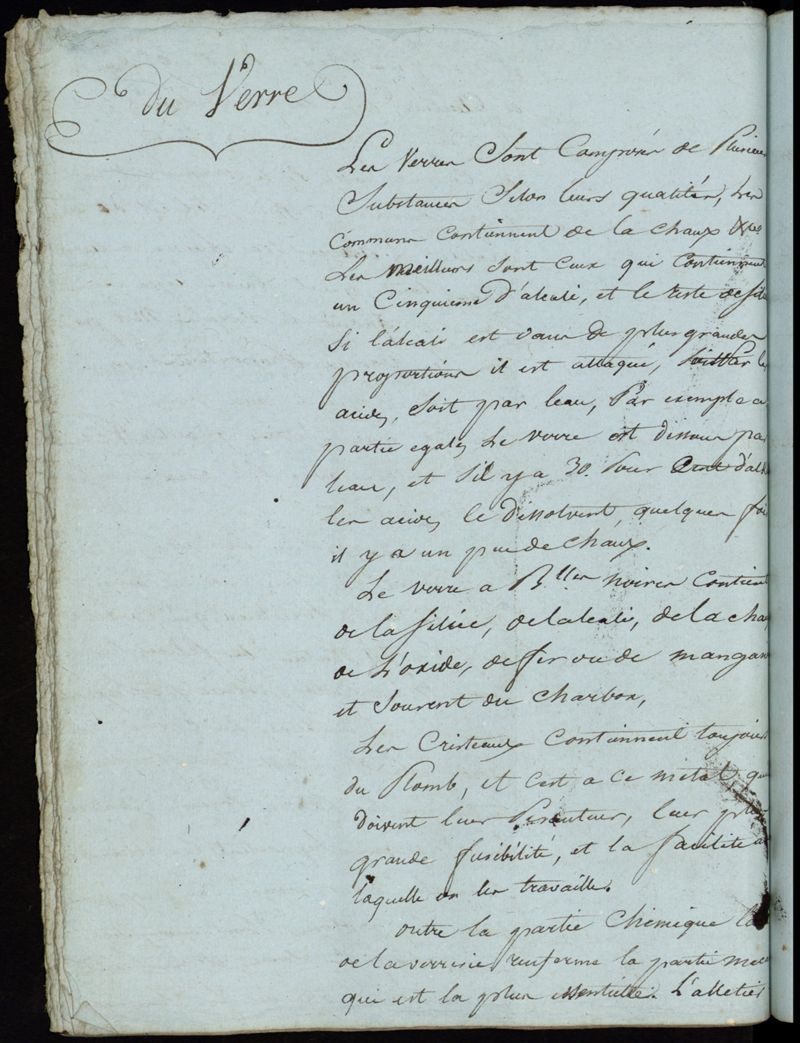 du Verre
Les Verres Sont Composés de Plusieurs
Substances Selon leurs qualités, Les
Communs Contiennent de la chaux
Les Meilleurs sont Ceux qui Contiennent
un Cinquieme D'alcali, et le reste de Sili
Si l'alcali est dans de plus grandes
proportions il est attaqué, les
acides, Soit par leau, Par exemple a
partie egales Le verre est dissous par
leau, et S'il y a 30. Pour Cent d'alk
les acides le Dissolvent, quelques fois
il y a un peu de Chaux.
Le verre a Blles noires Contient
de la Silice, de lalcali, de la chau
de L'oxide, de fer ou de mangan
et Souvent du Charbon,
Les Cristeaux Contiennent toujours
du Plomb, et c'est a ce métal que
doivent leur Pesanteur, leur plus
grande fusibilité, et la facilité a
laquelle on les travaille.
outre la partie Chimique l
de la verrerie renferme la partie me
qui est la plus essentielle. L'attelier